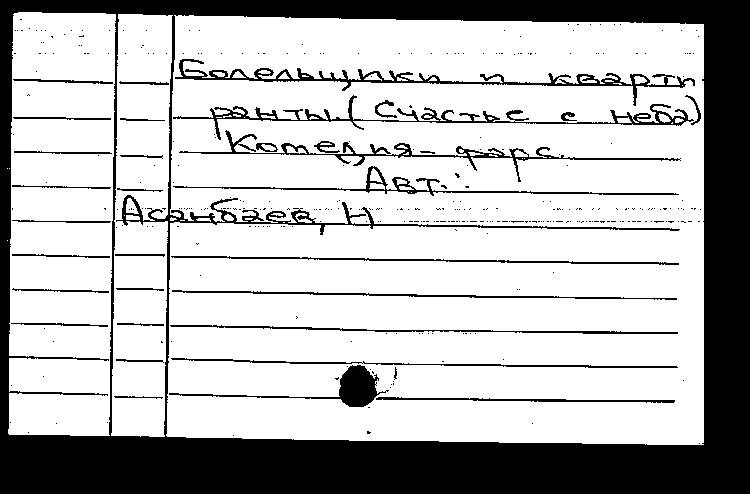 Болельщики и кварти-
ранты. (Счастье с неба)
Комедия-фарс.
Авт.:
Асанбаев, Н